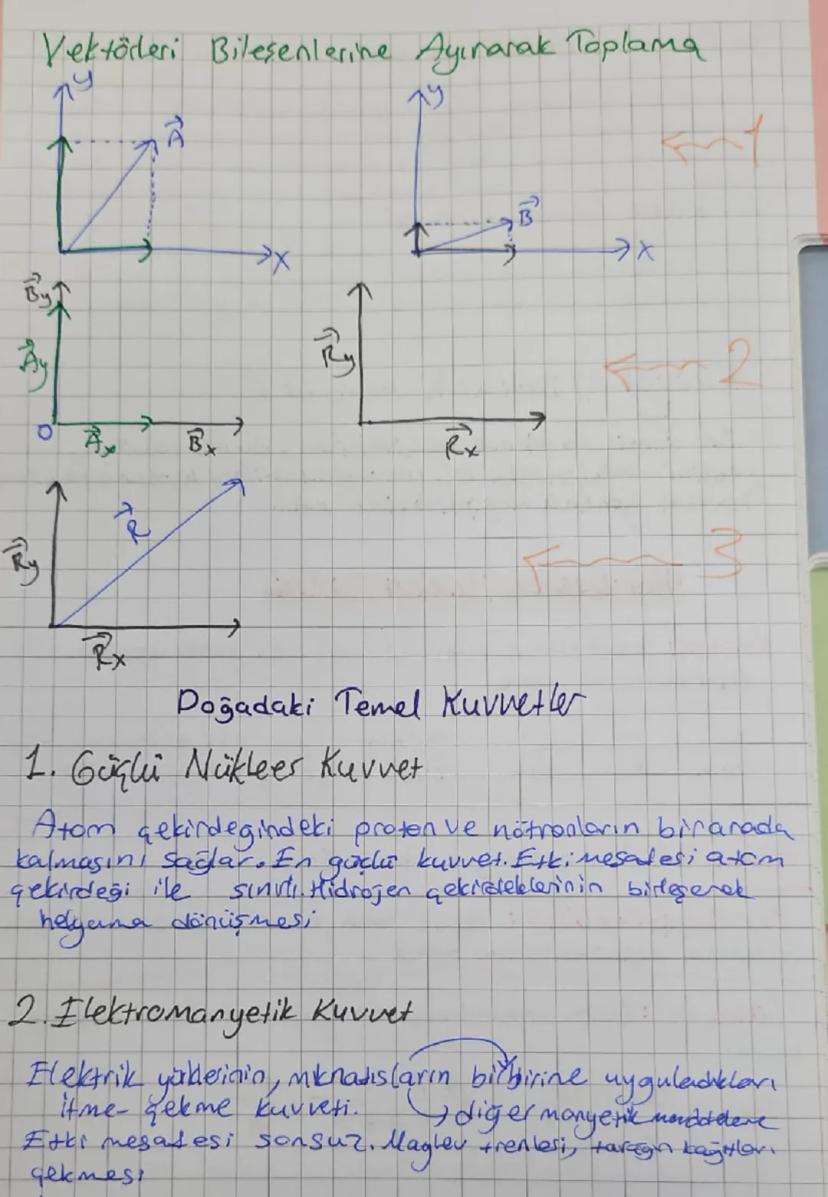 Vektörleri Bileşenlerine Ayırarak Toplama
y A x
y B x
1
By Ay O Ax Bx
Ry Rx
2
Ry R Rx
3
Doğadaki Temel Kuvvetler
1. Güçlü Nükleer Kuvvet
Atom çekirdegindeki proton ve nötronların birarada
kalmasını sağlar. En güçlü kuvvet. Etki mesafesi atom
çekirdeği ile sınırlı. Hidrojen çekirdeklerinin birleşerek
helyuma dönüşmesi
2. Elektromanyetik Kuvvet
Elektrik yüklerinin, mıknatısların birbirine uyguladıkları
itme-çekme kuvveti. diğer manyetik maddelere
Etki mesafesi sonsuz. Maglev trenleri, tarağın kağıtları
çekmesi